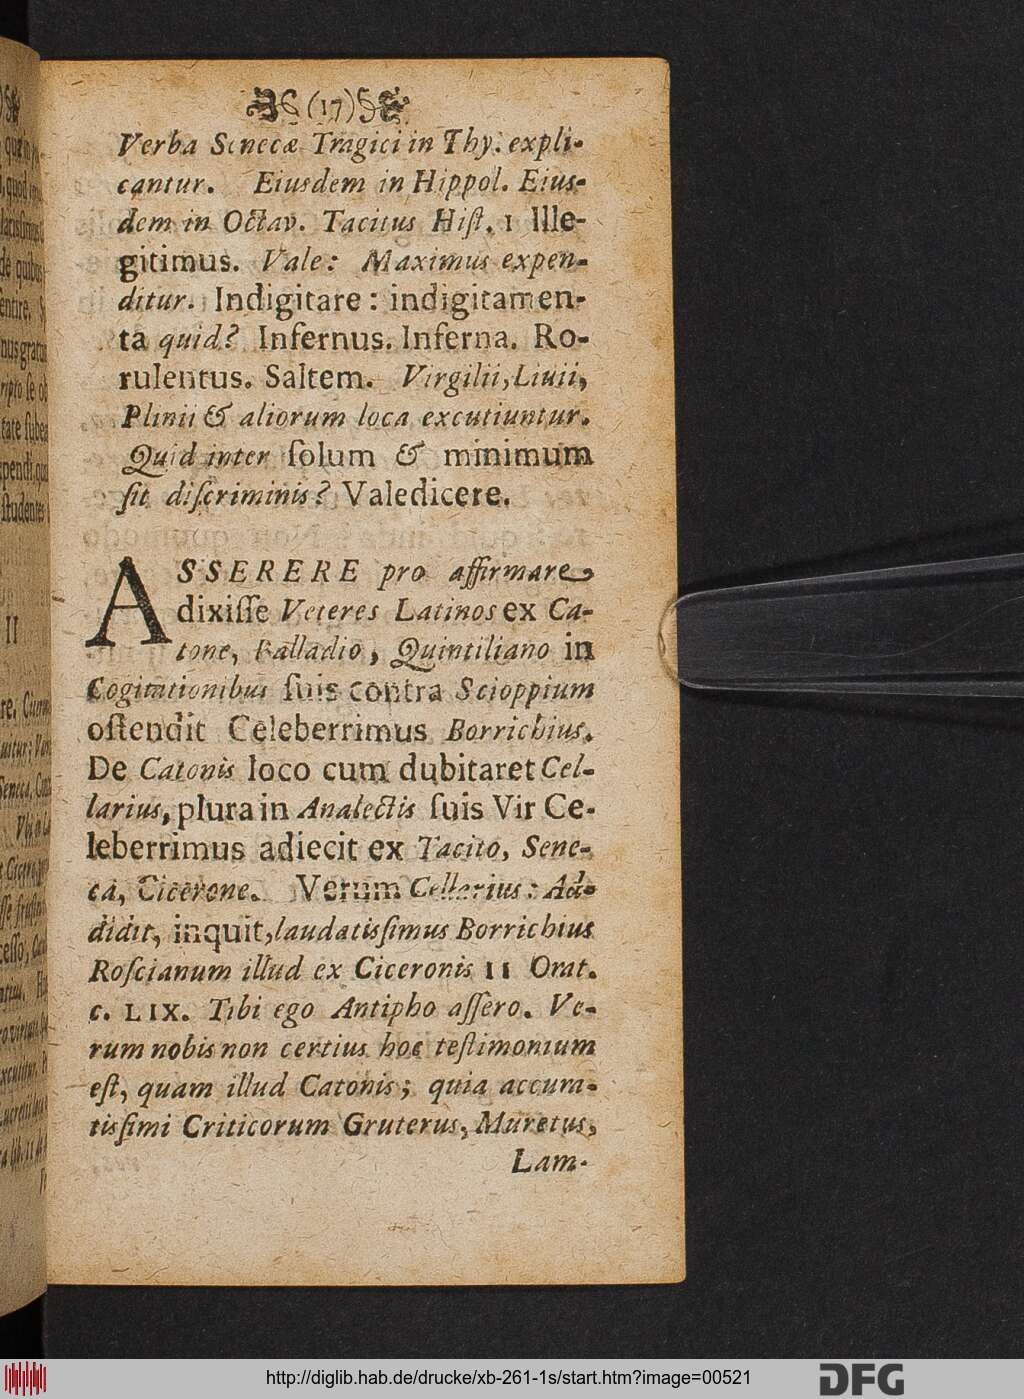 (17)
Verba Senecæ Tragici in Thy. expli-
cantur. Eiusdem in Hippol. Eius-
dem in Octav. Tacitus Hiſt. I Ille-
gitimus. Vale: Maximus expen-
ditur. Indigitare: indigitamen-
ta quid? Infernus. Inferna. Ro-
rulentus. Saltem. Virgilii, Liuii,
Plinii & aliorum loca excutiuntur.
Quid inter ſolum & minimum
ſit diſcriminis? Valedicere.
ASSERERE pro affirmare
dixiſſe Veteres Latinos ex Ca-
tone, Palladio, Quintiliano in
Cogitationibus ſuis contra Scioppium
oſtendit Celeberrimus Borrichius.
De Catonis loco cum dubitaret Cel-
larius, plura in Analectis ſuis Vir Ce-
leberrimus adiecit ex Tacito, Sene-
ca, Cicerone. Verum Cellarius: Ad-
didit, inquit, laudatisſimus Borrichius
Roſcianum illud ex Ciceronis II Orat.
c. LIX. Tibi ego Antipho aſſero. Ve-
rum nobis non certius hoc teſtimonium
eſt, quam illud Catonis; quia accura-
tisſimi Criticorum Gruterus, Muretus,
Lam-
http://diglib.hab.de/drucke/xb-261-1s/start.htm?image=00521
DFG